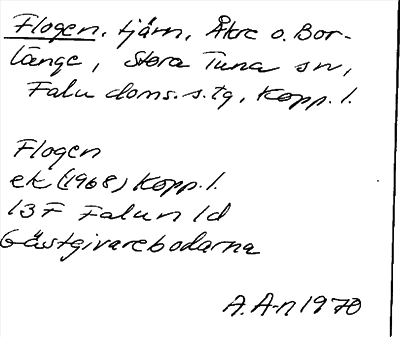 Flogen, tjärn, Åkre o. Bor-
länge, Stora Tuna sn,
Falu doms.s.tg, Kopp. l.
Flogen
ek (1968) Kopp. l.
13F Falun 1d
Gästgivarebodarna
A.A-n 1970